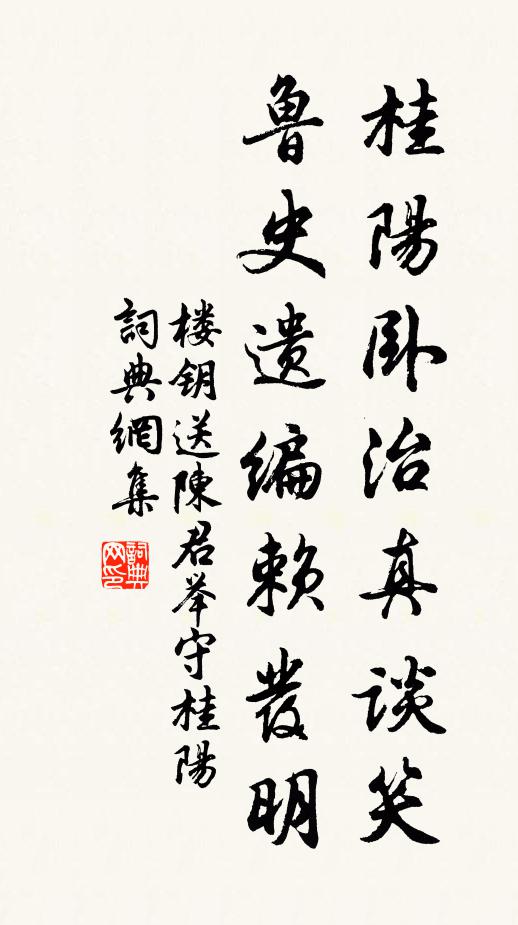 桂陽卧治真談笑
魯史遗编賴發明
楼钥送陳君举守桂陽
詞典網集
詞典
网印